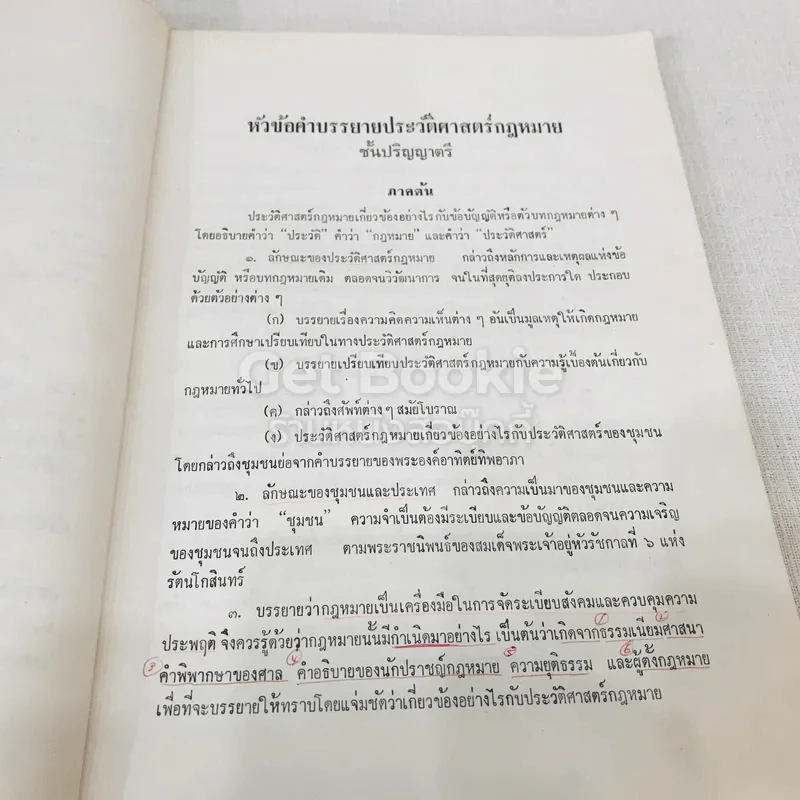 หัวข้อคำบรรยายประวัติศาสตร์กฎหมาย
ชั้นปริญญาตรี
ภาคต้น
ประวัติศาสตร์กฎหมายเกี่ยวข้องอย่างไรกับข้อบัญญัติหรือตัวบทกฎหมายต่าง ๆ
โดยอธิบายคำว่า “ประวัติ” คำว่า “กฎหมาย” และคำว่า “ประวัติศาสตร์”
๑. ลักษณะของประวัติศาสตร์กฎหมาย กล่าวถึงหลักการและเหตุผลแห่งข้อ
บัญญัติ หรือบทกฎหมายเดิม ตลอดจนวิวัฒนาการ จนในที่สุดยุติลงประการใด ประกอบ
ด้วยตัวอย่างต่าง ๆ
(ก) บรรยายเรื่องความคิดความเห็นต่าง ๆ อันเป็นมูลเหตุให้เกิดกฎหมาย
และการศึกษาเปรียบเทียบในทางประวัติศาสตร์กฎหมาย
(ข) บรรยายเปรียบเทียบประวัติศาสตร์กฎหมายกับความรู้เบื้องต้นเกี่ยวกับ
กฎหมายทั่วไป
(ค) กล่าวถึงศัพท์ต่าง ๆ สมัยโบราณ
(ง) ประวัติศาสตร์กฎหมายเกี่ยวข้องอย่างไรกับประวัติศาสตร์ของชุมชน
โดยกล่าวถึงชุมชนย่อจากคำบรรยายของพระองค์อาทิตย์ทิพอาภา
๒. ลักษณะของชุมชนและประเทศ กล่าวถึงความเป็นมาของชุมชนและความ
หมายของคำว่า “ชุมชน” ความจำเป็นต้องมีระเบียบและข้อบัญญัติตลอดจนความเจริญ
ของชุมชนจนถึงประเทศ ตามพระราชนิพนธ์ของสมเด็จพระเจ้าอยู่หัวรัชกาลที่ ๖ แห่ง
รัตนโกสินทร์
๓. บรรยายว่ากฎหมายเป็นเครื่องมือในการจัดระเบียบสังคมและควบคุมความ
ประพฤติ จึงควรรู้ด้วยว่ากฎหมายนั้นมีกำเนิดมาอย่างไร เป็นต้นว่าเกิดจาก ① ธรรมเนียม ② ศาสนา
③ คำพิพากษาของศาล ④ คำอธิบายของนักปราชญ์กฎหมาย ⑤ ความยุติธรรม ⑥ และผู้ตั้งกฎหมาย
เพื่อที่จะบรรยายให้ทราบโดยแจ่มชัดว่าเกี่ยวข้องอย่างไรกับประวัติศาสตร์กฎหมาย
Get Bookie
ร้านหนังสือบุ๊คกี้